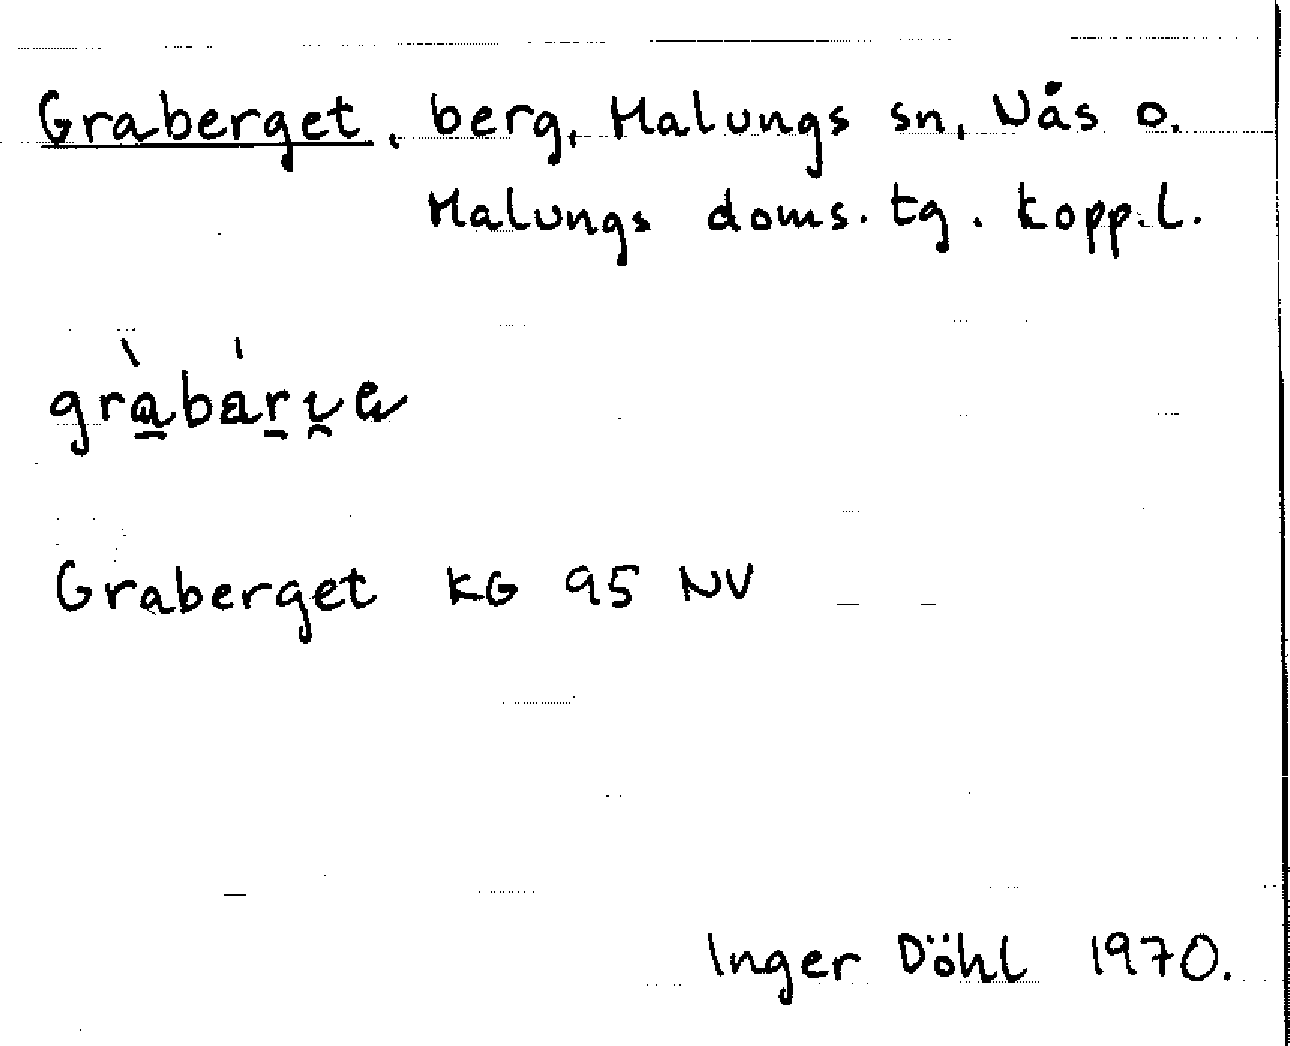 Graberget, berg, Malungs sn, Nås o.
Malungs doms. tg. kopp.l.
Graberget KG 95 NV
Inger Döhl 1970.